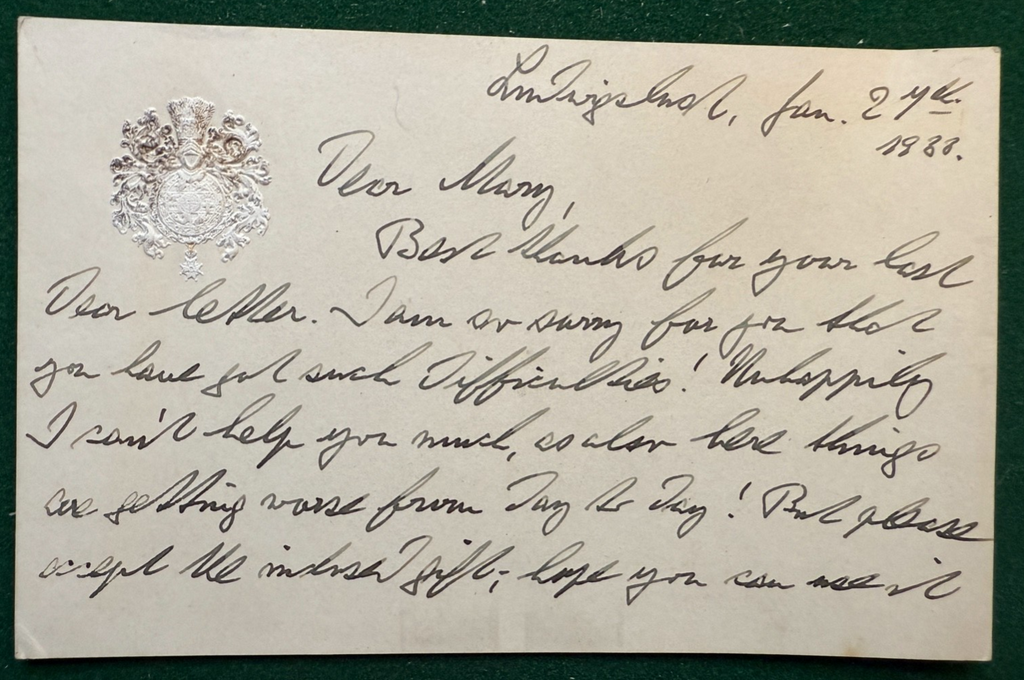 Ludwigslust, Jan. 27th.
1933.
Dear Mary,
Best thanks for your last
dear letter. I am so sorry for you that
you have got such difficulties! Unhappily
I can't help you much, as also here things
are getting worse from day to day! But please
accept the inclosed gift; hope you can use it